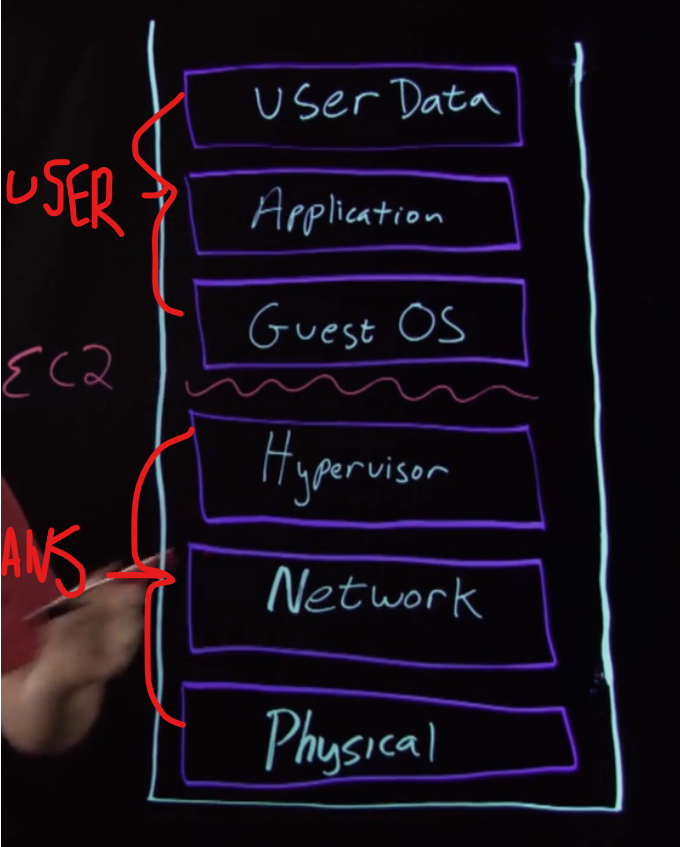 User Data
USER
Application
Guest OS
EC2
Hypervisor
ANS
Network
Physical